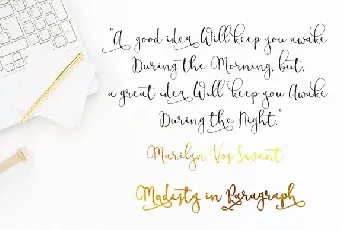 "A good idea Will keep you awake
During the Morning, but,
a great idea Will keep you Awake
During the Night."
Marilyn Vos Savant
Modesty in Paragraph